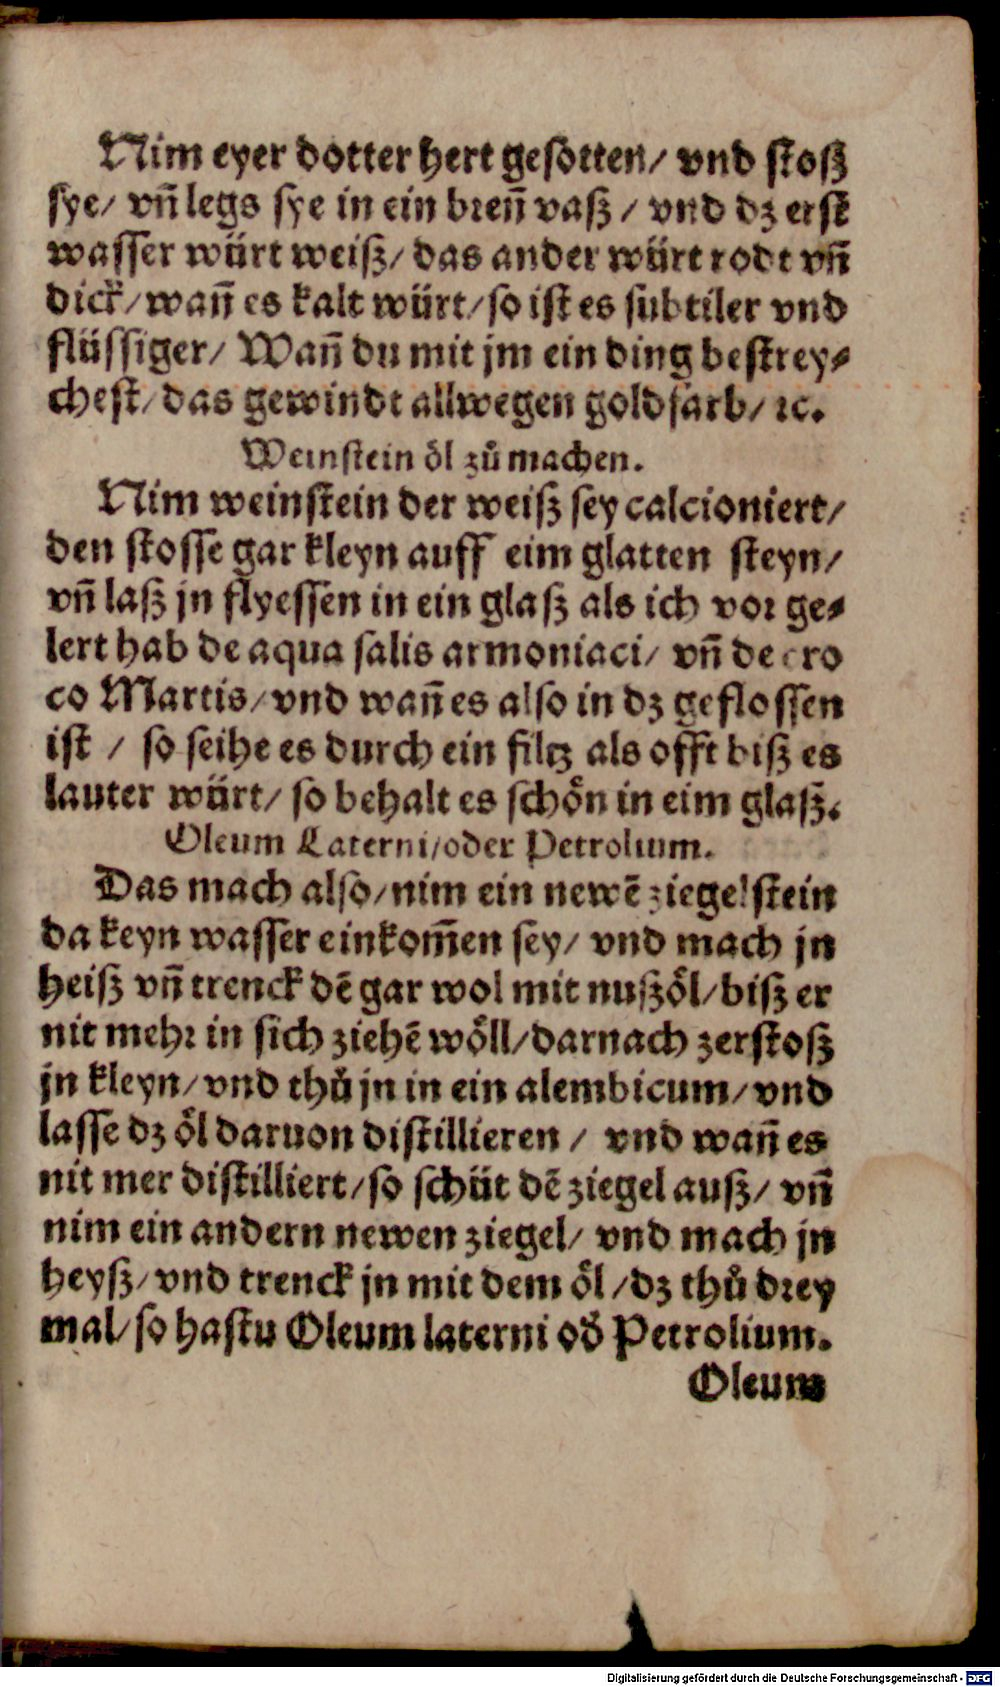 Nim eyer dotter hert gesotten/ vnd stoß
sye/ vñ legs sye in ein breñ vaß / vnd dz erst
wasser würt weiß/ das ander würt rodt vñ
dick/ wañ es kalt würt/ so ist es subtiler vnd
flüssiger/ Wañ du mit jm ein ding bestrey⸗
chest/ das gewindt allwegen goldfarb/ ꝛc.
Weinstein öl zů machen.
Nim weinstein der weiß sey calcioniert/
den stosse gar kleyn auff eim glatten steyn/
vñ laß jn flyessen in ein glaß als ich vor ge⸗
lert hab de aqua salis armoniaci/ vñ de cro
co Martis/ vnd wañ es also in dz geflossen
ist / so seihe es durch ein filtz als offt biß es
lauter würt/ so behalt es schön in eim glaß.
Oleum Laterni/oder Petrolium.
Das mach also/ nim ein newē ziegelstein
da keyn wasser einkom̄en sey/ vnd mach jn
heiß vñ trenck dē gar wol mit nußöl/ biß er
nit mehr in sich ziehē wöll/ darnach zerstoß
jn kleyn/ vnd thů jn in ein alembicum/ vnd
lasse dz öl daruon distillieren / vnd wañ es
nit mer distilliert/ so schüt dē ziegel auß/ vñ
nim ein andern newen ziegel/ vnd mach jn
heyß/ vnd trenck jn mit dem öl / dz thů drey
mal/ so hastu Oleum laterni oð Petrolium.
Oleum
Digitalisierung gefördert durch die Deutsche Forschungsgemeinschaft - DFG